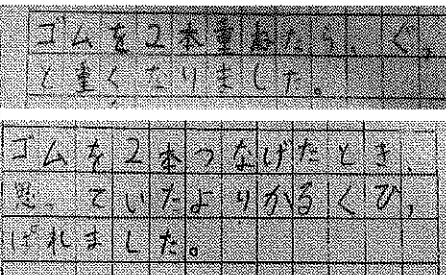 ゴムを2本重ねたら、ぐっ
と重くなりました。
ゴムを2本つなげたとき、
思っていたよりかるくひっ
ぱれました。